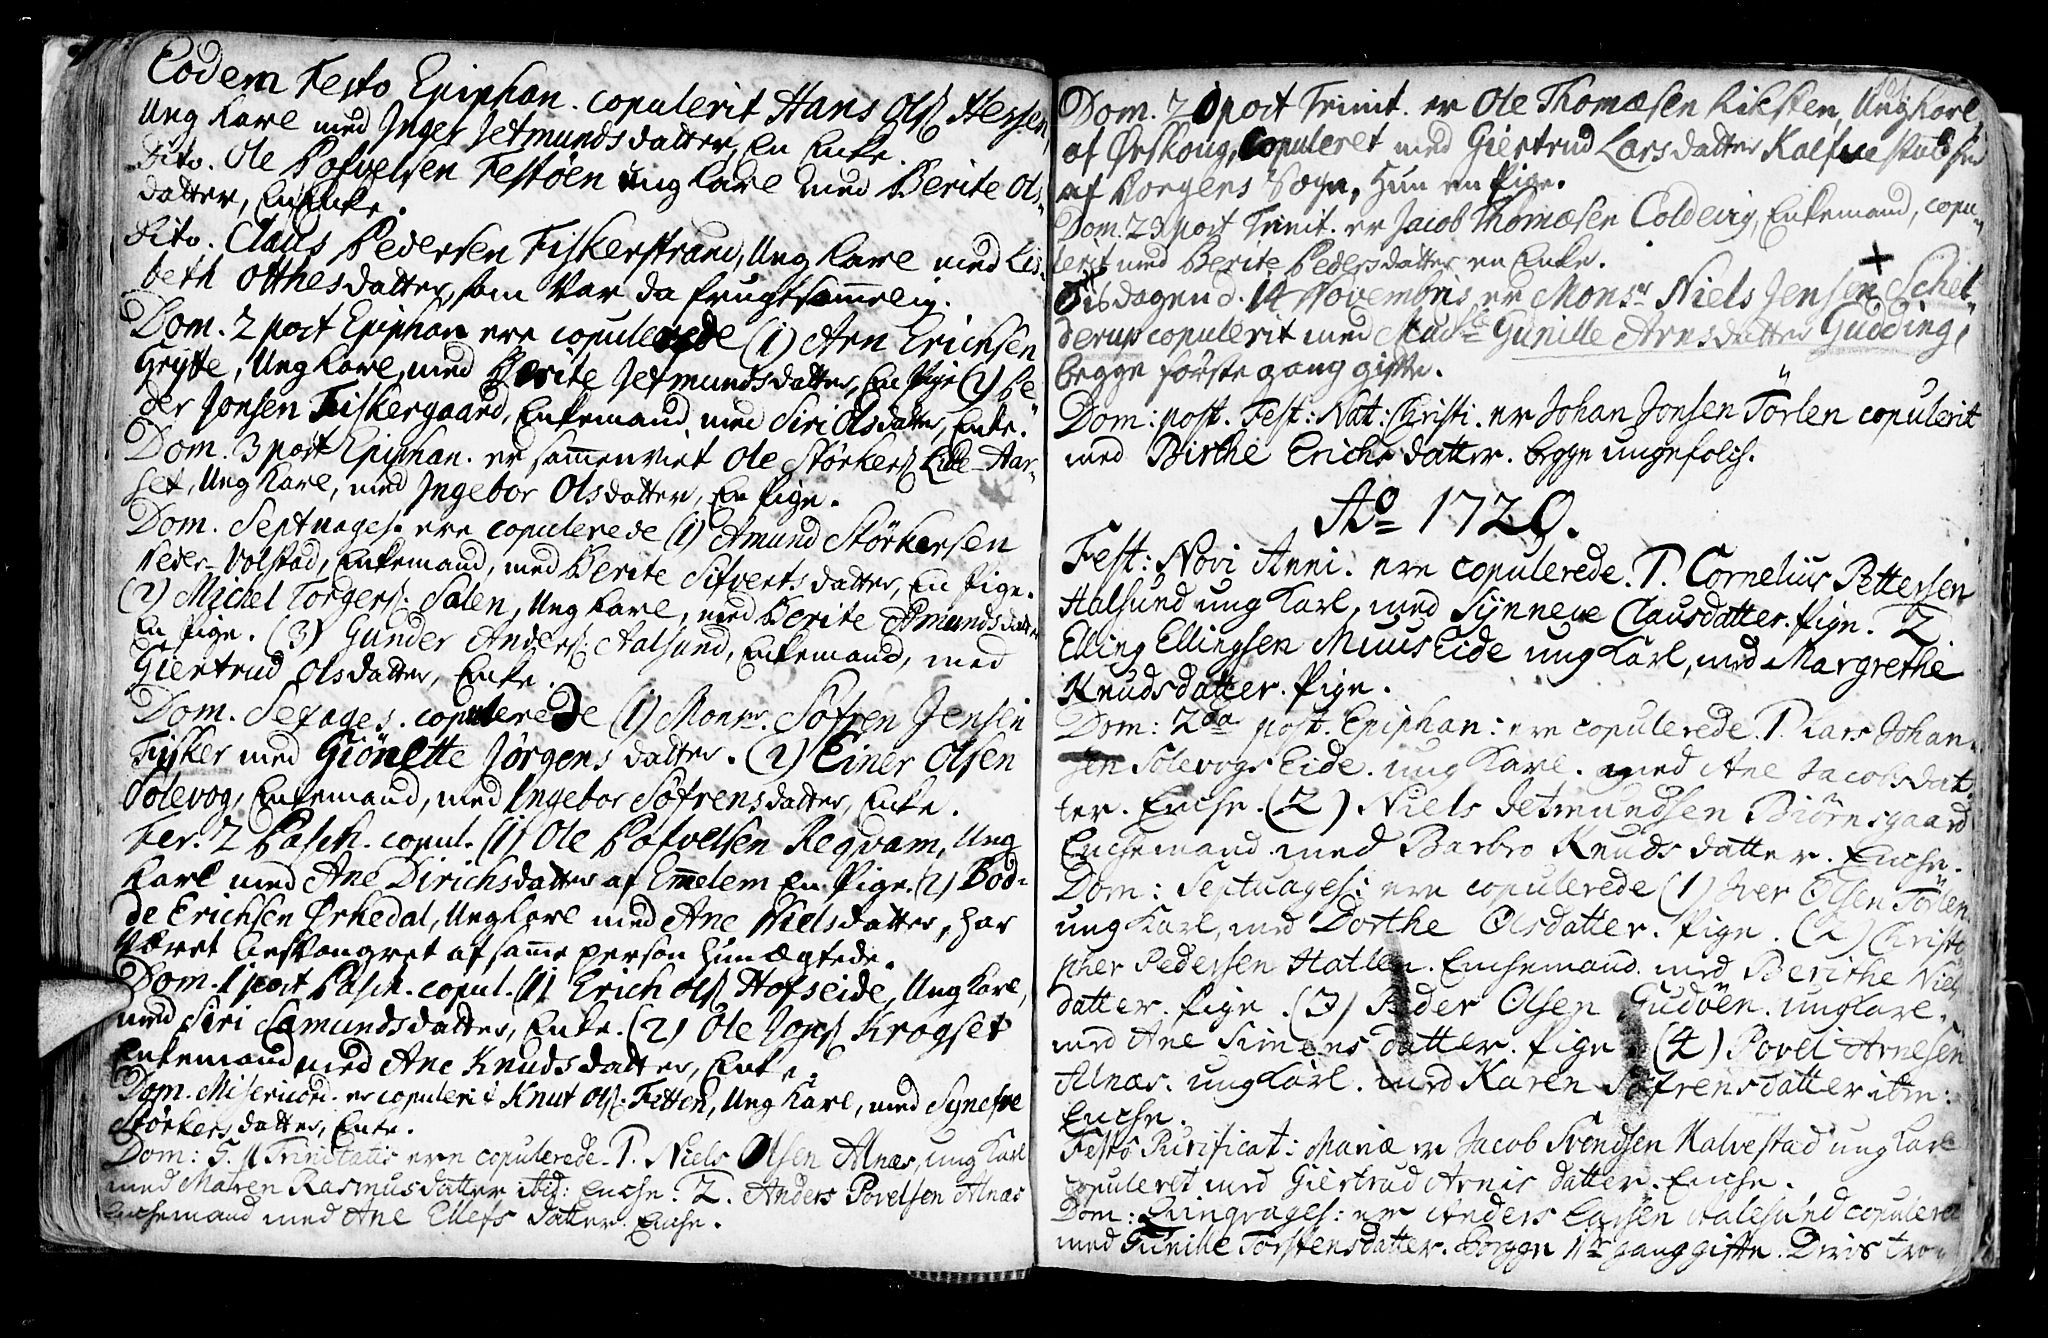 Eodem Festo Epiphan. copulerit Hans Olß Hessen,
Ung Karl med Inger Jetmundsdatter, En Enke.
Dito. Ole Pofvelsen Festöen ung Karl med Berite Ols-
datter, En Enke.
Dito. Claus Pedersen Fiskerstrand, Ung Karl med Lis-
beth Otthesdatter, som Var da frugtsommelig.
Dom. 2 post Epiphan ere copulerede (1) Arn Erichsen
Grytte, Ung Karl, med Berite Jetmundsdatter, En Pige (2) Pe-
der Jonsen Fiskergaard, Enkemand, med Siri Olsdatter, Enke.
Dom. 3 post Epiphan. er sammenviet Ole Störkerß Lille-Aar-
set, Ung Karl, med Ingebor Olsdatter, En Pige.
Dom. Septuages. ere copulerede (1) Amund Störkersen
Neder-Volstad, Enkemand, med Berite Sifvertsdatter, En Pige.
(2) Michel Torgerß. Salen, Ung Karl, med Berite Amundsdatter
En Pige. (3) Gunder Anderß Aalsund, Enkemand, med
Giertrud Olsdatter, Enke.
Dom. Sexages. copulerede (1) Monsr. Söfren Jensen
Fisker med Giönette Jörgensdatter. (2) Einer Olsen
Solevog, Enkemand, med Ingebor Söfrensdatter, Enke.
Fer. 2 Pasch. copul. (1) Ole Pofvelsen Reqvam, Ung
Karl med Ane Dirichsdatter af Emmelem En Pige. (2) Bod-
de Erichsen Ørkedal, Ung Karl med Ane Nielsdatter, har
Været besvangret af samme person hun ægtede.
Dom. 1 post Pasch. copul. (1) Erich Olß Hofseide, Ung Karl,
med Siri Samundsdatter, Enke. (2) Ole Jonß Krogset
Enkemand med Ane Knudsdatter, Enke.
Dom. Misericord. er copulerit Knut Olß. Fetten, Ung Karl, med Synefve
Störkersdatter, Enke.
Dom: 5. p Trinitatis ere copulerede. 1. Niels Olsen Alnæs, ung Karl
med Maren Rasmusdatter ibid: Enche. 2. Anders Povelsen Alnæs
Enchemand med Ane Ellefsdatter. Enche.
Dom. 20 post Trinit. er Ole Thomæsen Riksten, Ung Karl,
af Ørskoug, Copuleret med Giertrud Larsdatter
af Borgens Sogn, hun en Pige.
Dom. 23 post Trinit. er Jacob Thomæsen Coldevig, Enkemand, copu-
lerit med Berite Pedersdatter en Enke.
Tisdagen d. 14 Novembris er Monsr Niels Jensen Schel-
derup copulerit med Gunille Arnsdatter Gudding,
begge förste gang gifte.
Dom: post. Fest: Nat: Christi. er Johan Jonsen Törlen copulerit
med Birthe Erichsdatter. begge ungefolch.
Ao 1720.
Fest: Novi Anni. ere copulerede. 1. Cornelius Pettersen
Aalsund ung Karl, med Synneve Clausdatter. Pige. 2
Elling Ellingsen MuusEide ung Karl, med Margrethe
Knudsdatter. Pige.
Dom: 2da post. Epiphan: ere copulerede. 1. Lars Johan-
sen Solevogs Eide. ung Karl. med Ane Jacobsdat-
ter. Enche. (2) Niels Jetmundsen Biörnsgaard
Enchemand med Barbro Knudsdatter. Enche.
Dom: Septuages: ere copulerede (1) Iver Olsen Törlen
ung Karl, med Dorthe Olsdatter. Pige. (2) Christo-
pher Pedersen Hatlen. Enchemand. med Berithe Niels
datter. Pige. (3) Peder Olsen Gudöen. ung Karl.
med Ane Simensdatter. Pige. (4) Povel Arnesen
Alnæs. ung Karl. med Karen Söfrensdatter ibm:
Enche.
Festo Purificat: Mariæ er Jacob Svendsen Kalvestad ung Karl
copuleret med Giertrud Arnisdatter. Enche.
Dom: Qvinqvages: er Anders Larsen Aalesund copuleret
med Gunille Torstensdatter. Begge 1te gang gifte.